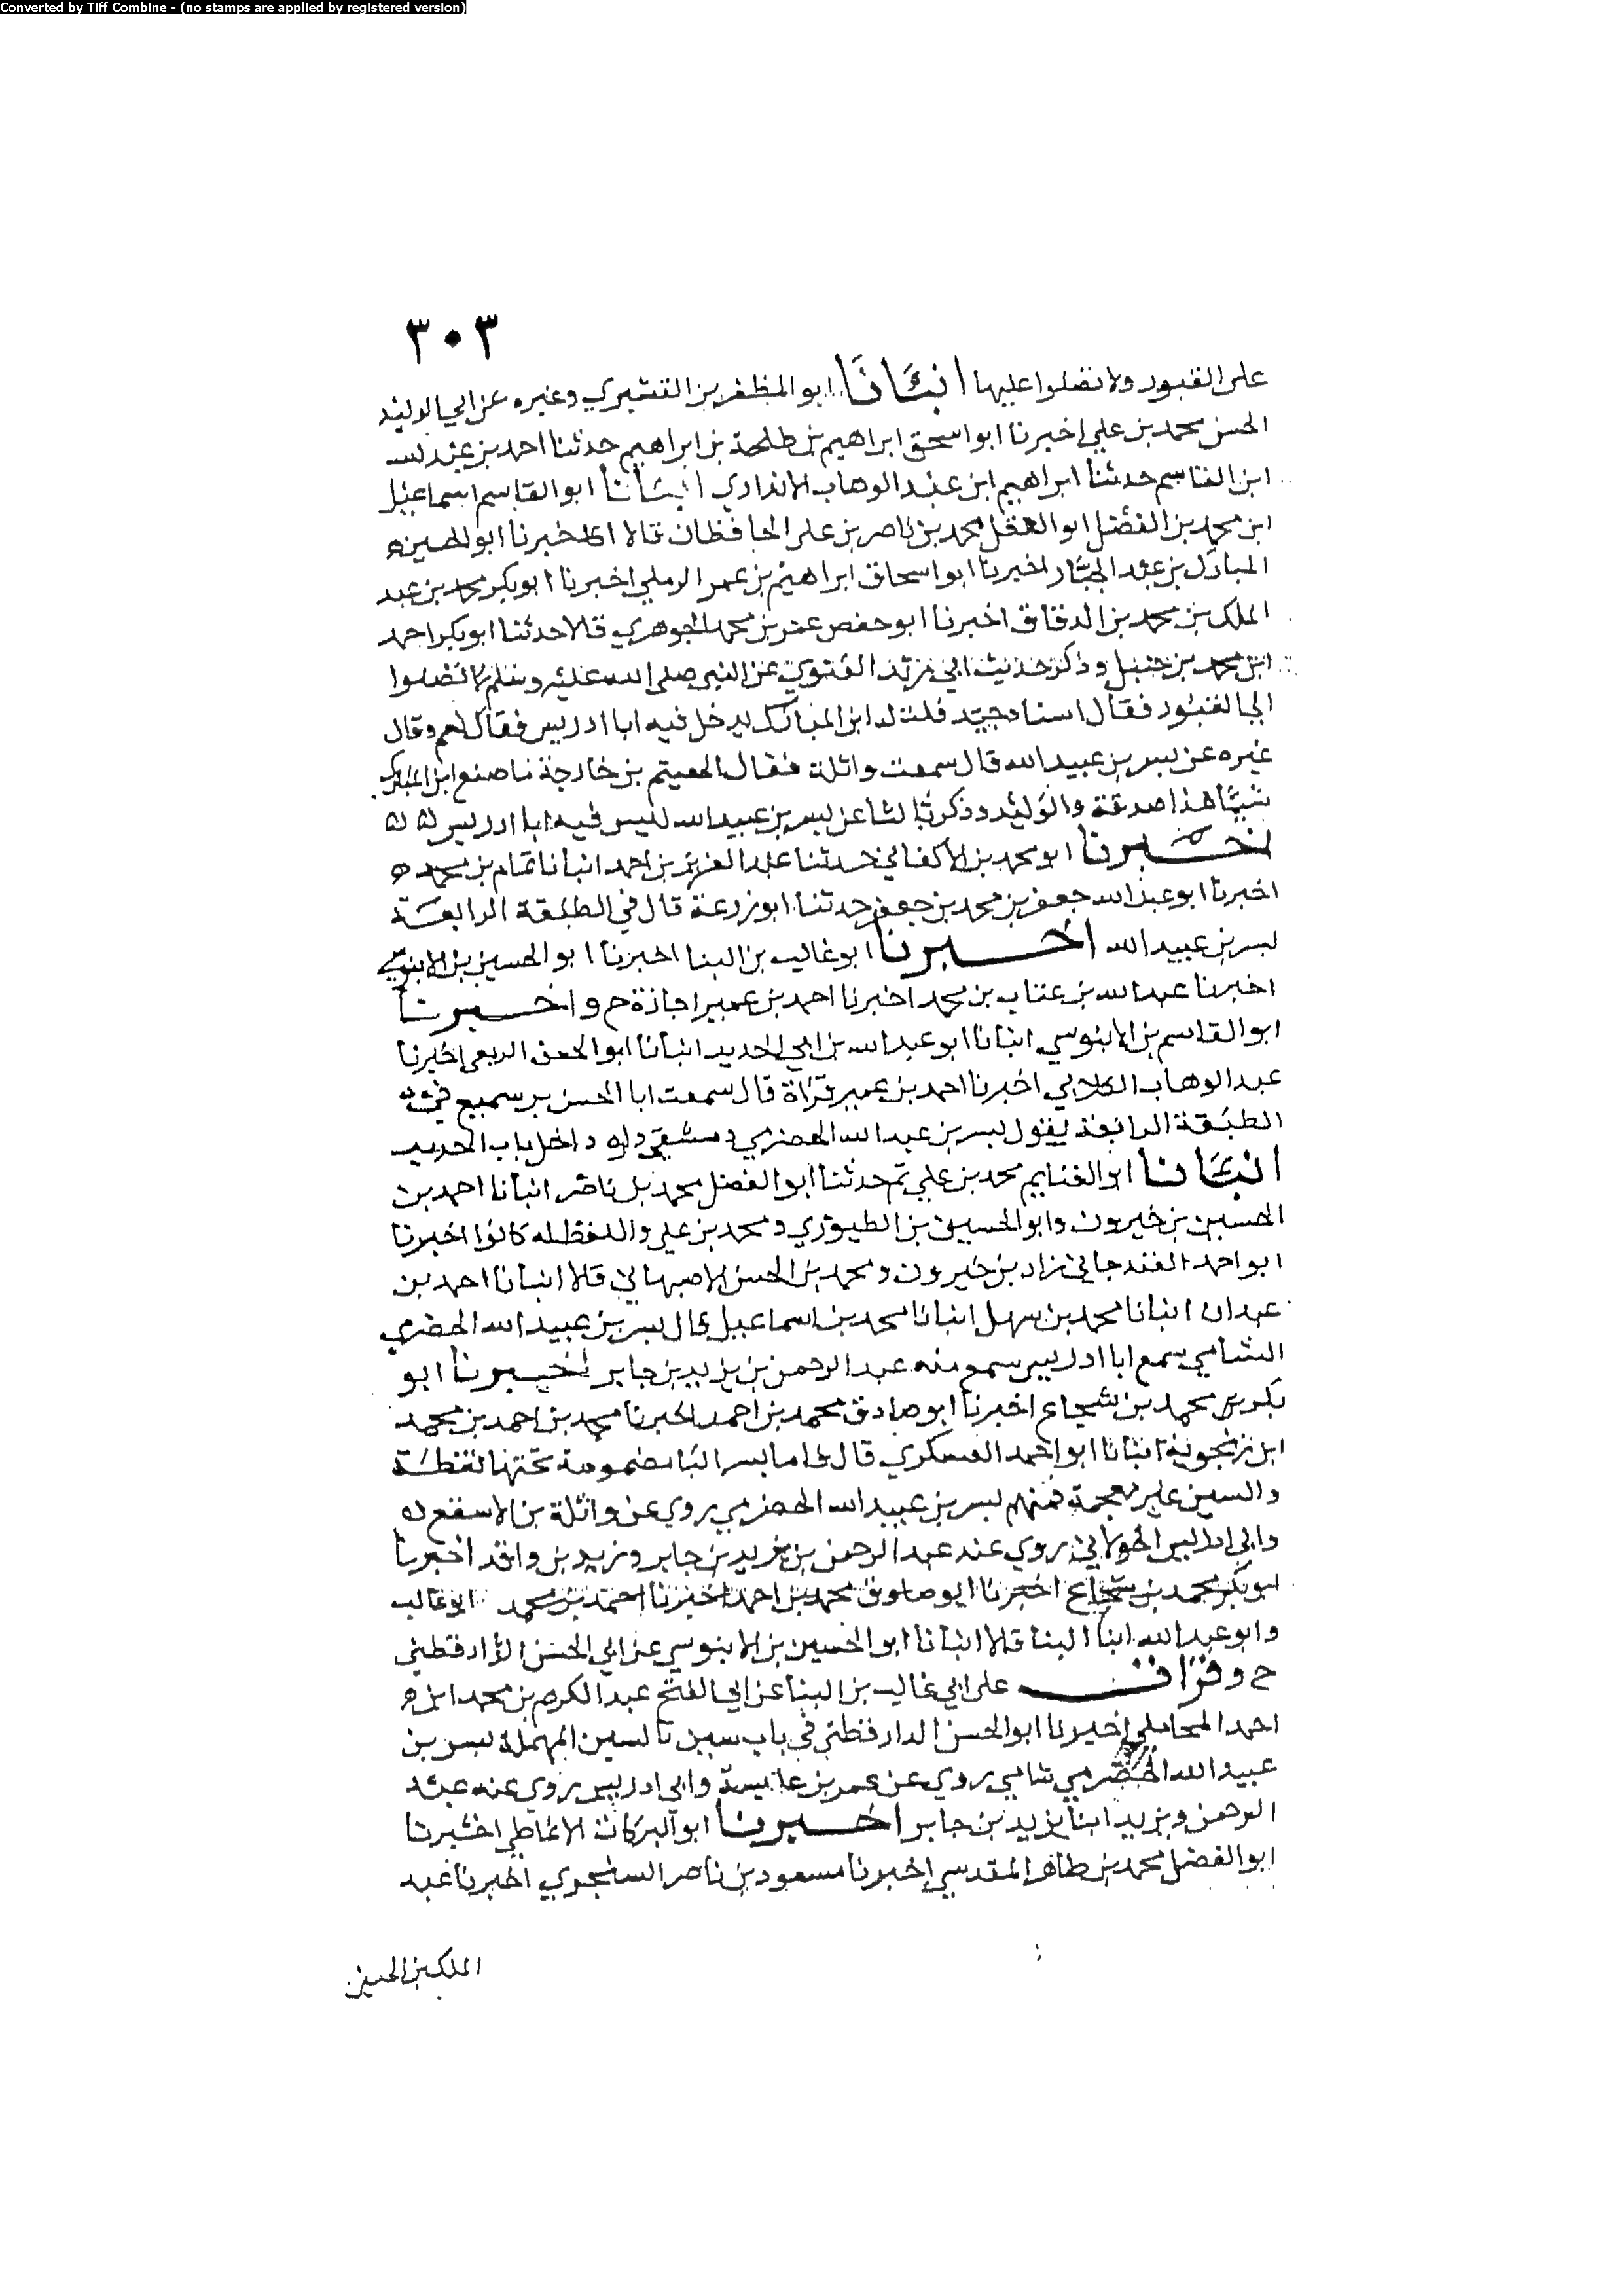 Converted by Tiff Combine - (no stamps are applied by registered version)
٣٠٣
على القبور ولا تصلوا عليها انبانا ابو المظفر بن القشيري وغيره عن ابي الوليد
الحسن محمد بن علي اخبرنا ابو اسحق ابراهيم بن طلحة بن ابراهيم حدثنا احمد بن
ابن القاسم حدثنا ابراهيم ابن عبد الوهاب الانداري انبانا ابو القاسم اسماعيل
ابن محمد بن الفضل ابو الفضل محمد بن ناصر بن علي الحافظان قالا اخبرنا ابو الحسين
المبارك بن عبد الجبار اخبرنا ابو اسحاق ابراهيم بن عمر الرملي اخبرنا ابو بكر محمد بن عبد
الملك بن محمد بن الدقاق اخبرنا ابو حفص عمر بن محمد الجوهري قالا حدثنا ابو بكر احمد
ابن محمد بن حنبل وذكر حديث ابي مرثد الغنوي عن النبي صلى الله عليه وسلم لا تصلوا
الى القبور فقال اسناد جيد قلت له ابن المبارك يدخل فيه ابا ادريس فقال نعم وقال
غيره عن بسر بن عبيد الله قال سمعت واثلة فقال الهيثم بن خارجة ما صنع ابن المبارك
شيئا هذا صدقة والوليد وذكر ثالثا عن بسر بن عبيد الله ليس فيه ابا ادريس
اخبرنا ابو محمد بن الاكفاني حدثنا عبد العزيز بن احمد انبانا تمام بن محمد
اخبرنا ابو عبد الله جعفر بن محمد بن جعفر حدثنا ابو زرعة قال في الطبقة الرابعة
بسر بن عبيد الله اخبرنا ابو غالب بن البنا اخبرنا ابو الحسين بن الابنوسي
اخبرنا عبد الله بن عتاب بن محمد اخبرنا احمد بن عمير اجازة ح واخبرنا
ابو القاسم بن الابنوسي انبانا ابو عبد الله بن ابي الحديد انبانا ابو الحسن الربعي اخبرنا
عبد الوهاب الكلابي اخبرنا احمد بن عمير قراة قال سمعت ابا الحسن بن سميع في
الطبقة الرابعة يقول بسر بن عبد الله الحضرمي دمشقي داره داخل باب الحديد
انبانا ابو الغنايم محمد بن علي ثم حدثنا ابو الفضل محمد بن ناصر انبانا احمد بن
الحسين بن خيرون وابو الحسين بن الطيوري ومحمد بن علي واللفظ له قالوا اخبرنا
ابو احمد الغندجاني زاد بن خيرون ومحمد بن الحسن الاصبهاني قالا انبانا احمد بن
عبدان انبانا محمد بن سهل انبانا محمد بن اسماعيل قال بسر بن عبيد الله الحضرمي
الشامي سمع ابا ادريس سمع منه عبد الرحمن بن يزيد بن جابر اخبرنا ابو
بكر بن محمد بن شجاع اخبرنا ابو صادق محمد بن احمد اخبرنا محمد بن احمد بن محمد
ابن زنجوية انبانا ابو احمد العسكري قال فاما بسر البا مضمومة تحتها نقطة
والسين غير معجمة فمنهم بسر بن عبيد الله الحضرمي روي عن واثلة بن الاسقع
وابي ادريس الخولاني روي عنه عبد الرحمن بن يزيد بن جابر وزيد بن واقد اخبرنا
ابو بكر محمد بن شجاع اخبرنا ابو صادق محمد بن احمد اخبرنا احمد بن محمد ابو غالب
وابو عبد الله ابنا البنا قالا انبانا ابو الحسين بن الابنوسي عن ابي الحسن الدارقطني
ح وقرات على ابي غالب بن البنا عن ابي الفتح عبد الكريم بن محمد ابن
احمد المحاملي اخبرنا ابو الحسن الدارقطني في باب بسر بالسين المهملة بسر بن
عبيد الله الحضرمي شامي روي عن عمر بن عابسة وابي ادريس روي عنه عبد
الرحمن ويزيد ابنا يزيد بن جابر اخبرنا ابو البركات الانماطي اخبرنا
ابو الفضل محمد بن طاهر المقدسي اخبرنا مسعود بن ناصر السنجري اخبرنا عبد
الملك بن الحسين